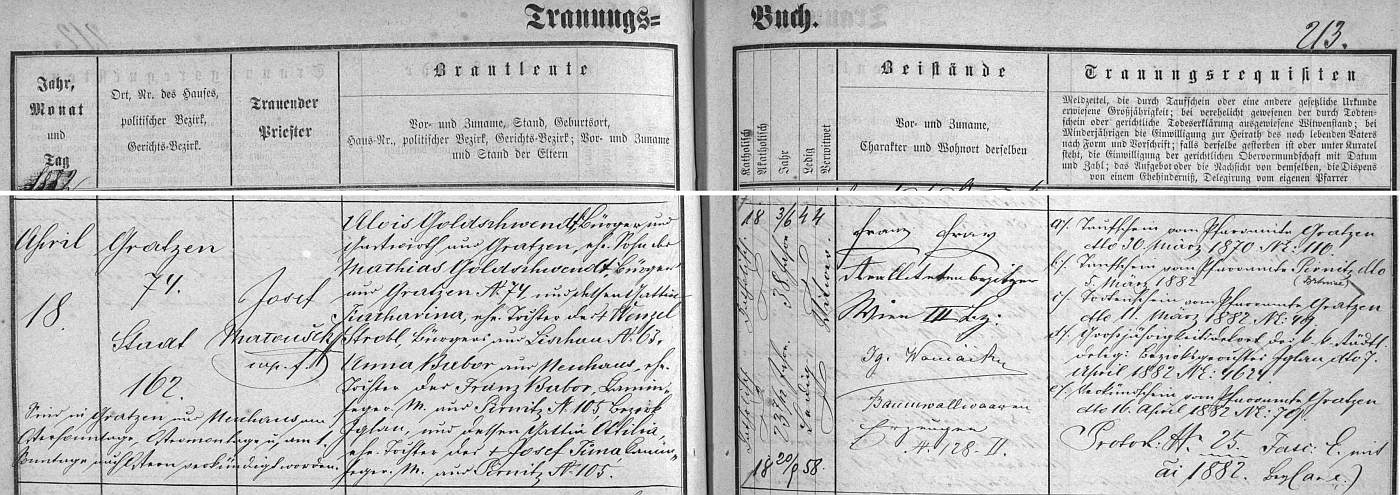 Trauungs=
Buch.
213.
Jahr,
Monat
und
Tag
Ort, Nr. des Hauses,
politischer Bezirk,
Gerichts-Bezirk.
Trauender
Priester
Brautleute
Vor- und Zuname, Stand, Geburtsort,
Haus-Nr., politischer Bezirk, Gerichts-Bezirk; Vor- und Zuname
und Stand der Eltern
Katholisch
Akatholisch
Jahr
Ledig
Verwitwet
Beistände
Vor- und Zuname,
Charakter und Wohnort derselben
Trauungsrequisiten
Meldzettel, die durch Taufschein oder eine andere gesetzliche Urkunde
erwiesene Großjährigkeit; bei verehelicht gewesenen der durch Todten-
schein oder gerichtliche Todeserklärung ausgewiesene Witwenstand; bei
Minderjährigen die Einwilligung zur Heirath des noch lebenden Vaters
nach Form und Vorschrift; falls derselbe gestorben ist oder unter Kuratel
steht, die Einwilligung der gerichtlichen Obervormundschaft mit Datum
und Zahl; das Aufgebot oder die Nachsicht von demselben, die Dispens
von einem Ehehinderniß, Delegirung vom eigenen Pfarrer
April
18.
Gratzen
74.
Stadt
162.
Sind in Gratzen und Neuhaus am
Ostersonntage, Ostermontage u. am 1.
Sonntage nach Ostern verkündigt worden.
Josef
Matousek
cap.
Alois Goldschwendt, Bürger und
Gastwirth aus Gratzen, ehe. Sohn des
Mathias Goldschwendt Bürger
aus Gratzen N. 74, und dessen Gattin
Katharina, ehe. Tochter des + Wenzel
Strobl, Bürgers aus Lischau N. 63.
Anna Bubor aus Neuhaus, ehe.
Tochter des Franz Bubor, Kamin
feger M. aus Pirnitz N. 105 Bezirk
Iglau, und dessen Gattin Otilia
ehe. Tochter des + Josef Tuma Kamin
feger M. aus Pirnitz N. 105.
18 3/6 44
38 Jahre
Witwer
Katholisch
23 Jahre
Ledig
18 20/9 58.
Franz
Wien III Bez:
Baumwollwaaren
Erzeuger
N. 128. II.
a/. Taufschein vom Pfarramte Gratzen
dto 30. März 1870 N: 116.
b/. Taufschein vom Pfarramte Pirnitz dto
5. März 1882
c/. Todtenschein vom Pfarramte Gratzen
dto 11. März 1882 N: 49
d/. Grossjährigkeit k. k. städt.
deleg. Bezirksgerichtes Iglau dto 7.
April 1882 N: 4624.
e/. Verkündschein vom Pfarramte Gratzen
dto 16. April 1882 N: 79.
Protok. N. 25 Fasc. E. mit
1882.